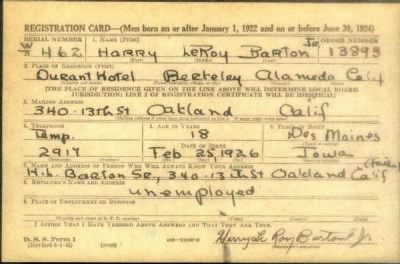 REGISTRATION CARD—(Men born on or after January 1, 1922 and on or before June 30, 1924)
SERIAL NUMBER 1. NAME (Print) ORDER NUMBER
W 462 HARRY LeROY BARTON Jr 13893
(First) (Middle) (Last)
2. PLACE OF RESIDENCE (Print)
Durant Hotel Berkeley Alameda Calif
[THE PLACE OF RESIDENCE GIVEN ON THE LINE ABOVE WILL DETERMINE LOCAL BOARD
JURISDICTION; LINE 2 OF REGISTRATION CERTIFICATE WILL BE IDENTICAL]
3. MAILING ADDRESS
340-13th St Oakland Calif
[Mailing address if other than place indicated on line 2. If same insert word same]
4. TELEPHONE 5. AGE IN YEARS 6. PLACE OF BIRTH
Temp. 18 Des Moines
DATE OF BIRTH
2917 Feb 25, 1926 Iowa
7. NAME AND ADDRESS OF PERSON WHO WILL ALWAYS KNOW YOUR ADDRESS
H.L. Barton Sr, 340-13th St Oakland Calif
8. EMPLOYER'S NAME AND ADDRESS
unemployed
9. PLACE OF EMPLOYMENT OR BUSINESS
I AFFIRM THAT I HAVE VERIFIED ABOVE ANSWERS AND THAT THEY ARE TRUE.
D. S. S. Form 1 (over)
Harry Le Roy Barton Jr